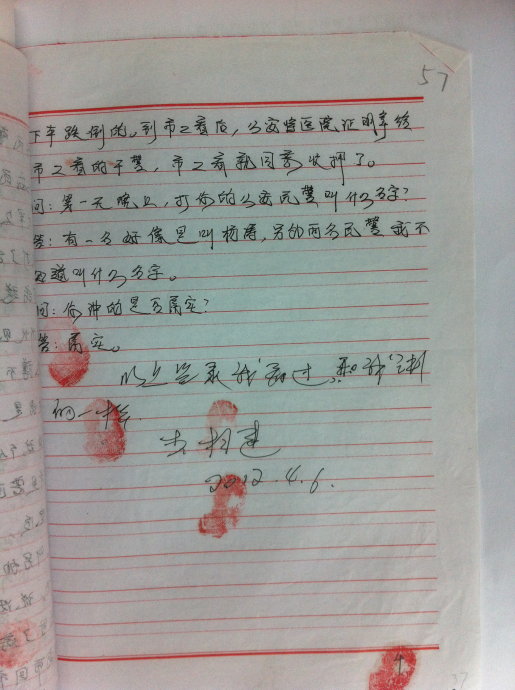 57
下车跌倒的。到市二看后,公安医院证明拿给
市二看的干警,市二看就同意收押了。
问:第一天晚上,打你的公安民警叫什么名字?
答:有一名好像是叫杨涛,另外两名民警我不
知道叫什么名字。
问:你讲的是否属实?
答:属实。
以上笔录我看过,和我讲
的一样
2012.4.6.
37